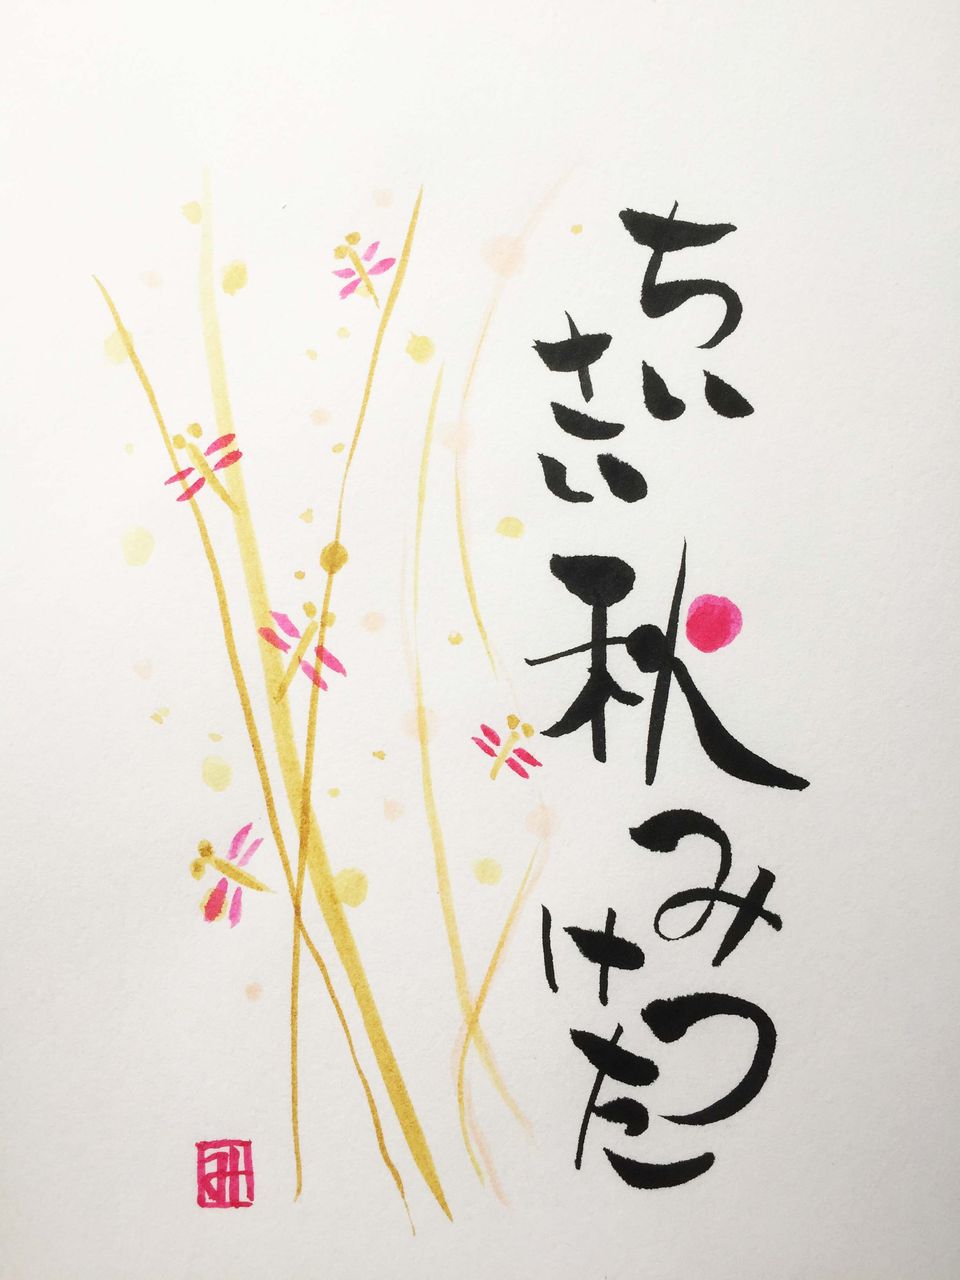 ちいさい
秋
みつけた